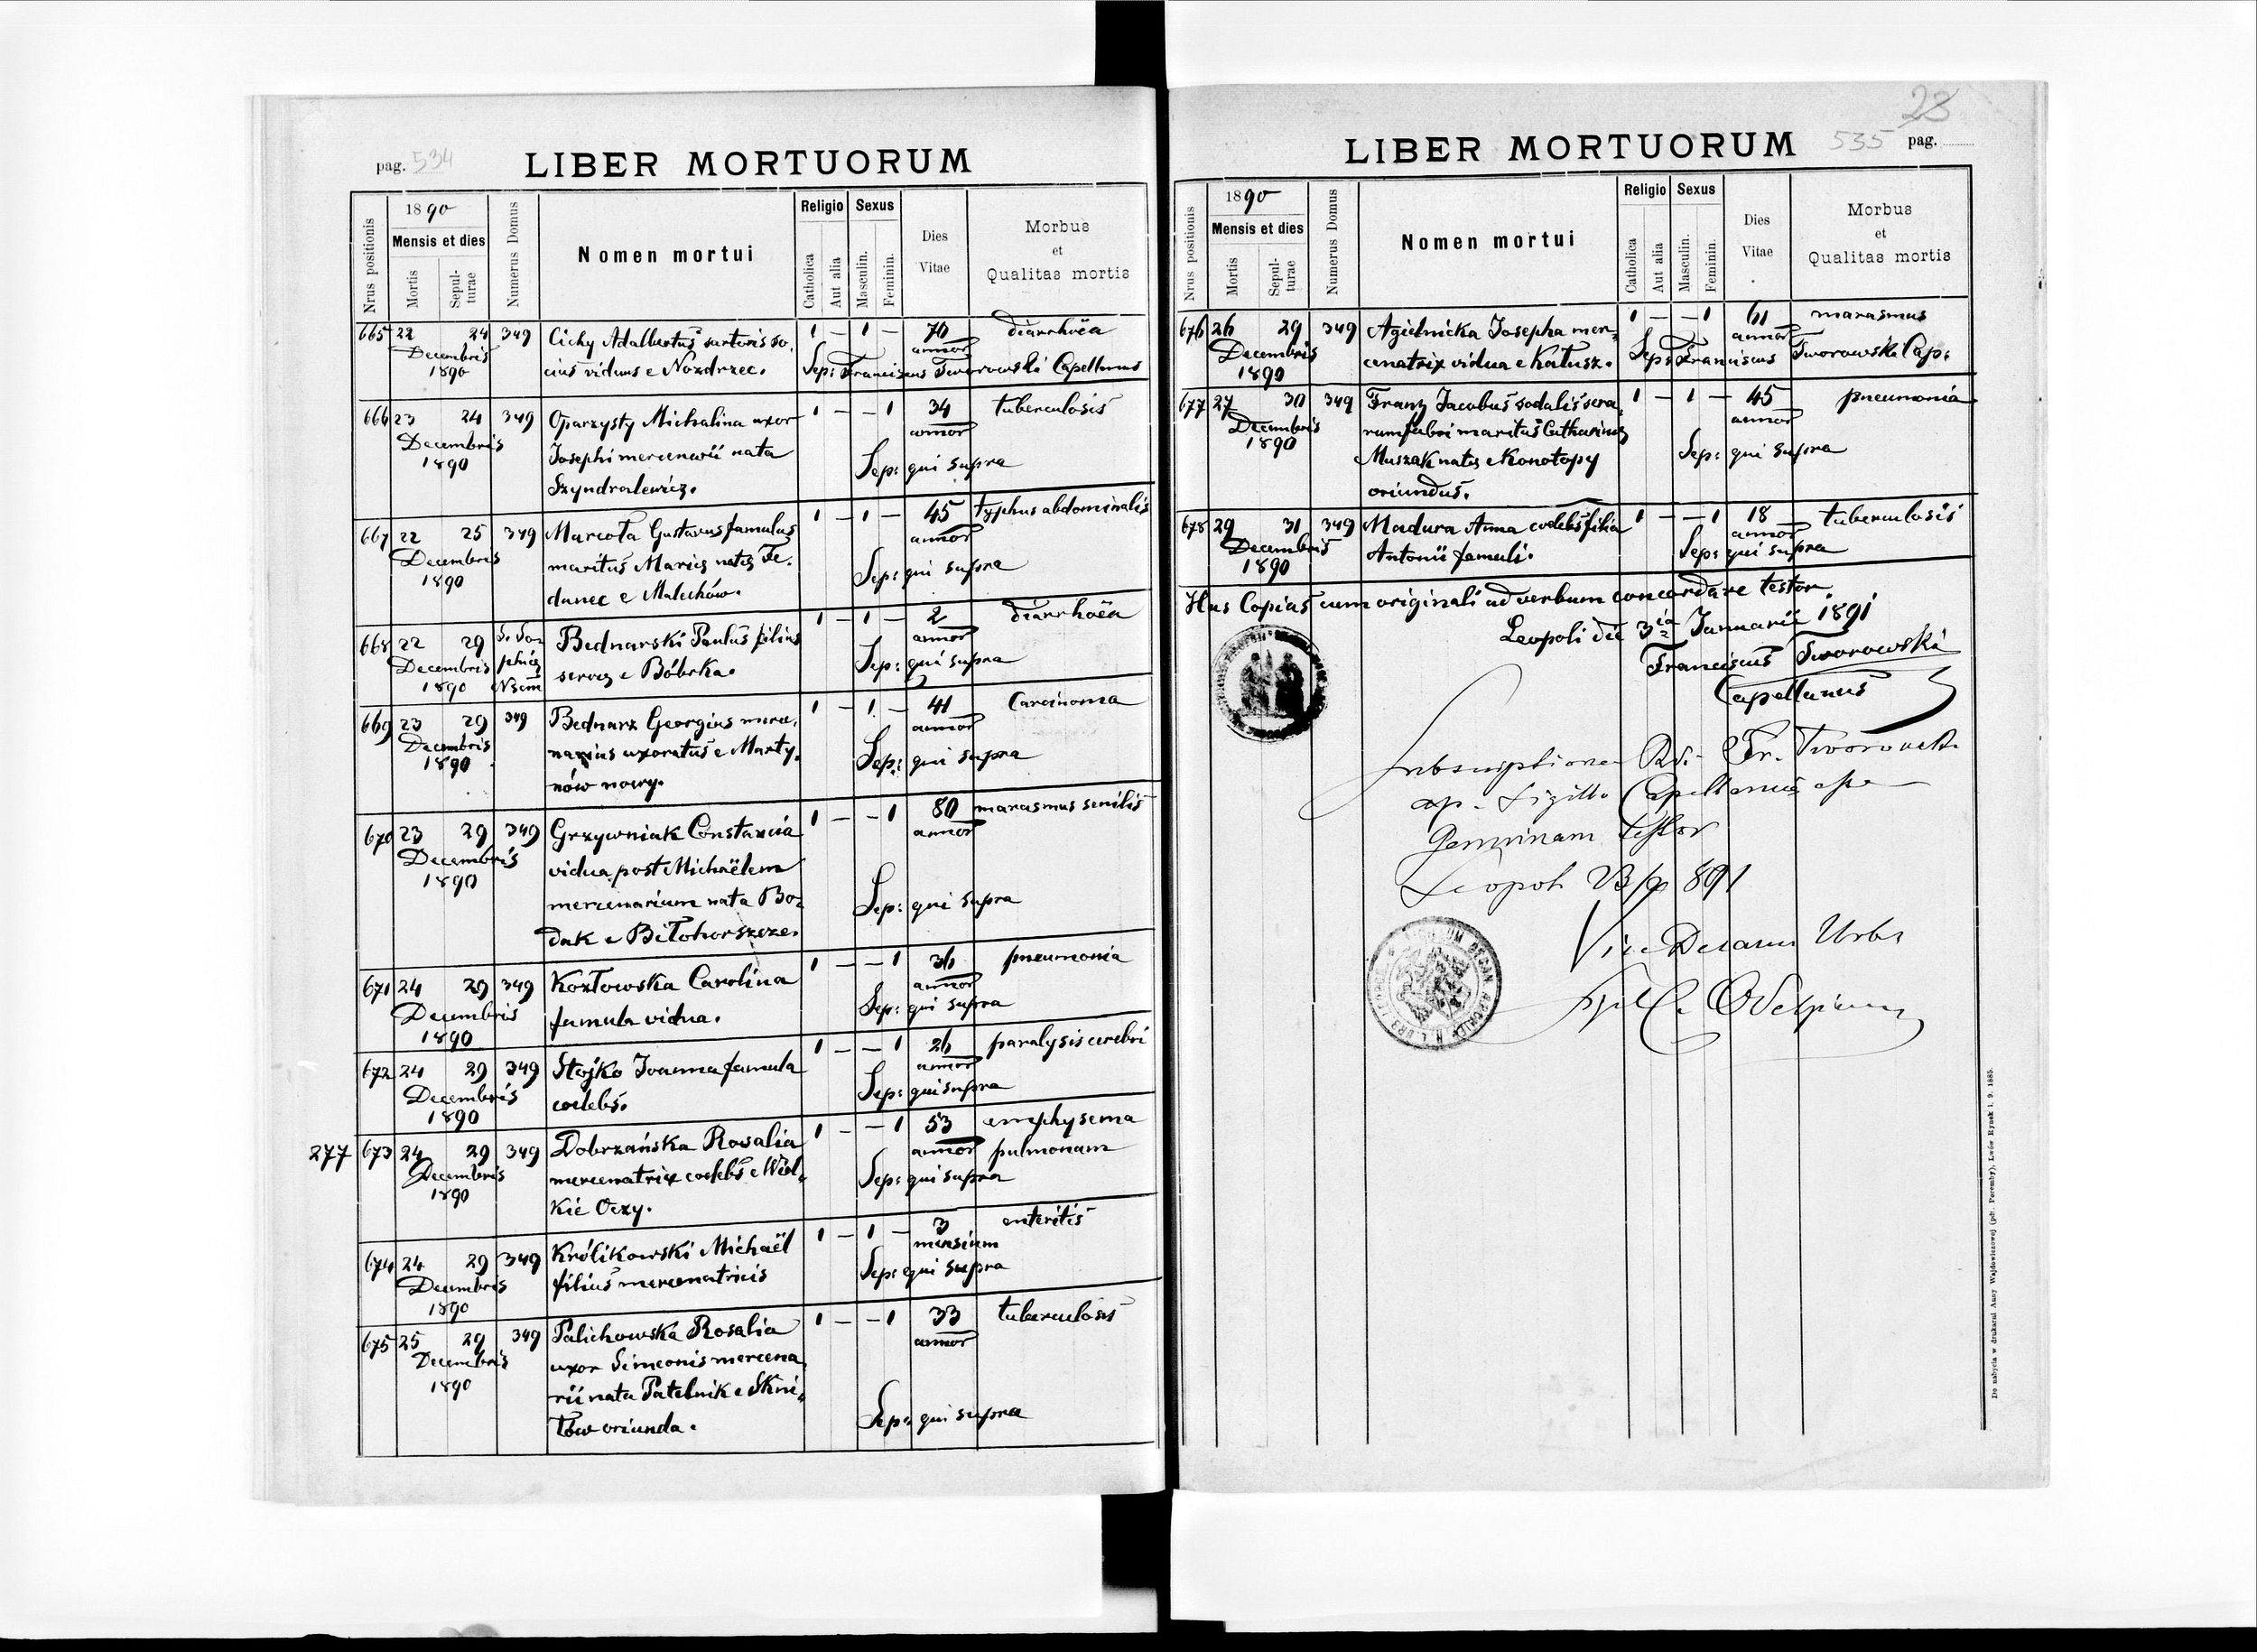 pag. 534
LIBER MORTUORUM
Nrus positionis
1890
Mensis et dies
Mortis
Sepul-
turae
Numerus Domus
Nomen mortui
Religio
Catholica
Aut alia
Sexus
Masculin.
Feminin.
Dies
Vitae
Morbus
et
Qualitas mortis
665 22 24 349 Cichy Adalbertus sartoris so. 1 – 1 – 70 diarrhoëa
Decembris annor
1890 cius viduus e Nozdrzec. Sep: Franciscus Tworowski Capellanus
666 23 24 349 Oparzysty Michalina uxor 1 – – 1 34 tuberculosis
Decembris Josephi mercenarii nata annor
1890 Szyndralewicz. Sep: qui supra
667 22 25 349 Marcota Gustavus famulus 1 – 1 – 45 typhus abdominalis
Decembris maritus Mariæ natæ Fe. annor
1890 danec e Malechów. Sep: qui supra
668 22 29 Bednarski Paulus filius 1 – 1 – 2 diarrhoëa
Decembris annor
1890 servæ e Bóbrka. Sep: qui supra
669 23 29 349 Bednarz Georgius merce. 1 – 1 – 41 Carcinoma
Decembris narius uxoratus e Marty. annor
1890 nów nowy. Sep: qui supra
670 23 29 349 Grzywniak Constancia 1 – – 1 80 marasmus senilis
Decembris vidua post Michaëlem annor
1890 mercenarium nata Bo- Sep: qui supra
dak e Biłohorszcze.
671 24 29 349 Kozłowska Carolina 1 – – 1 36 pneumonia
Decembris famula vidua. annor
1890 Sep: qui supra
672 24 29 349 Stojko Joanna famula 1 – – 1 26 paralysis cerebri
Decembris coelebs. annor
1890 Sep: qui supra
277 673 24 29 349 Dobrzańska Rosalia 1 – – 1 53 emphysema
Decembris mercenatrix coelebs e Wiel. annor pulmonum
1890 kie Oczy. Sep: qui supra
674 24 29 349 Królikowski Michaël 1 – 1 – 3 enteritis
Decembris filius mercenatricis mensium
1890 Sep: qui supra
675 25 29 349 Palichowska Rosalia 1 – – 1 33 tuberculosis
Decembris uxor Simeonis mercena. annor
1890 rii nata Patelnik e Skni.
łów oriunda. Sep: qui supra
23
LIBER MORTUORUM 535 pag.
Nrus positionis
1890
Mensis et dies
Mortis
Sepul-
turae
Numerus Domus
Nomen mortui
Religio
Catholica
Aut alia
Sexus
Masculin.
Feminin.
Dies
Vitae
Morbus
et
Qualitas mortis
676 26 29 349 Agielnicka Josepha mer. 1 – – 1 61 marasmus
Decembris annor
1890 cenatrix vidua e Kałusz. Sep: Franciscus Tworowski Cap:
677 27 30 349 Franz Jacobus sodalis sera. 1 – 1 – 45 pneumonia
Decembris rum fabri maritus Catharinæ annor
1890 Muszak natæ e Konotopy Sep: qui supra
oriundus.
678 29 31 349 Madura Anna coelebs filia 1 – – 1 18 tuberculosis
Decembris annor
1890 Antonii famuli. Sep: qui supra
Has Copias cum originali ad verbum concordare testor.
Leopoli die 3ia Januarii 1891
Franciscus Tworowski
Capellanus
Subscriptionem Rdi. Fr. Tworowski
ap. Sigillo Capellaniae esse
Genuinam testor
Leopoli 891
Vice Decanus Urbis
Do nabycia w drukarni Anny Wajdowiczowej (pdt. Poremby), Lwów Rynek l. 9. 1885.